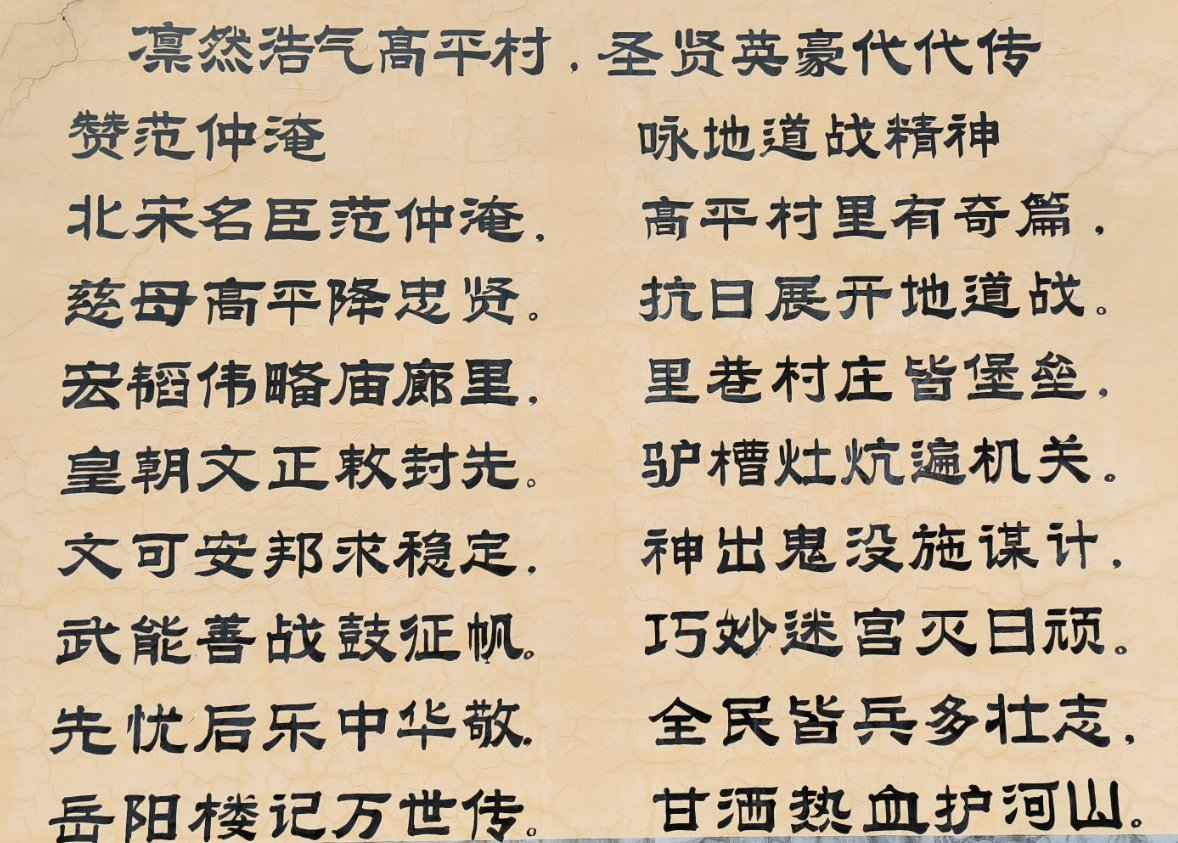 凛然浩气高平村，圣贤英豪代代传
赞范仲淹
北宋名臣范仲淹，
慈母高平降忠贤。
宏韬伟略庙廊里，
皇朝文正敕封先。
文可安邦求稳定，
武能善战鼓征帆。
先忧后乐中华敬，
岳阳楼记万世传。
咏地道战精神
高平村里有奇篇，
抗日展开地道战。
里巷村庄皆堡垒，
驴槽灶炕遍机关。
神出鬼没施谋计，
巧妙迷宫灭日顽。
全民皆兵多壮志，
甘洒热血护河山。